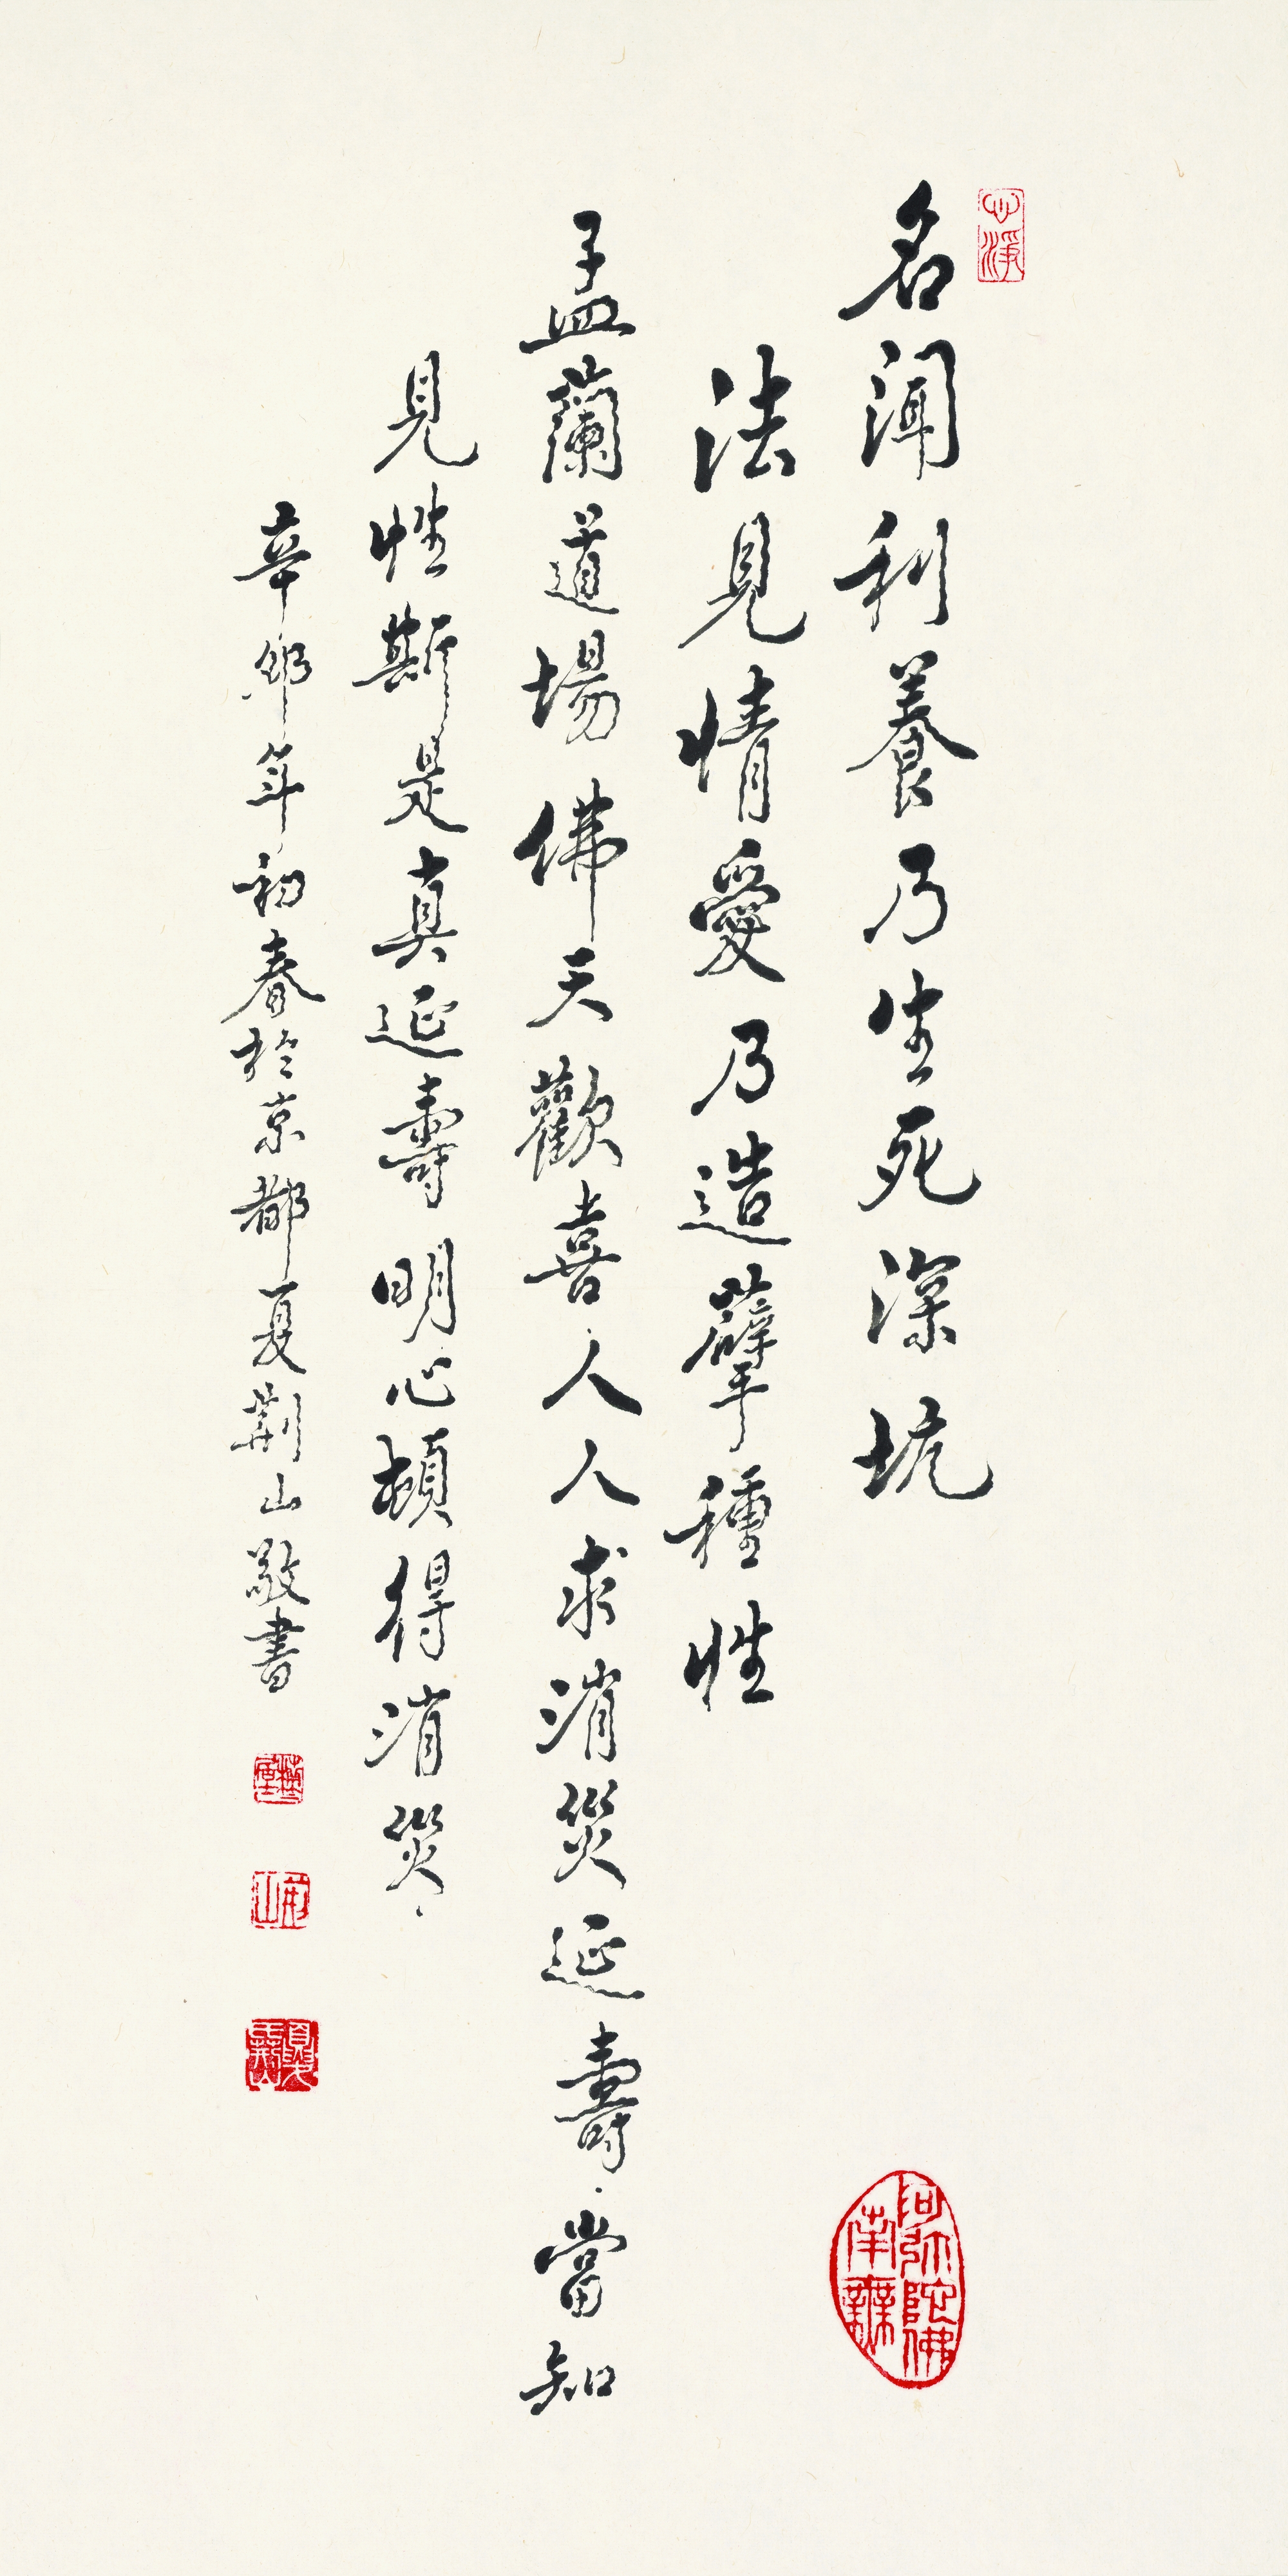 心淨
名聞利養乃生死深坑
法見情愛乃造孽種性
孟蘭道場佛天歡喜人人求消災延壽當知
見性斯是真延壽明心頓得消災
辛卯年初春於京都夏荊山敬書
南無阿弥陀佛